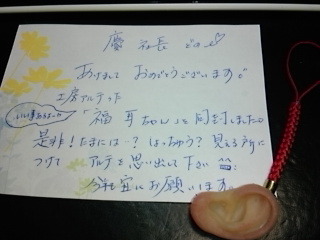 慶 社長 どの
あけまして おめでとうございます。
土房アルテった
いい事あるよーに
「福耳ちゃん」を同封しましたの
是非！たまには…？はっちゃう？見える所に
つけて アルテを思い出して下さい
宜にお願いします。